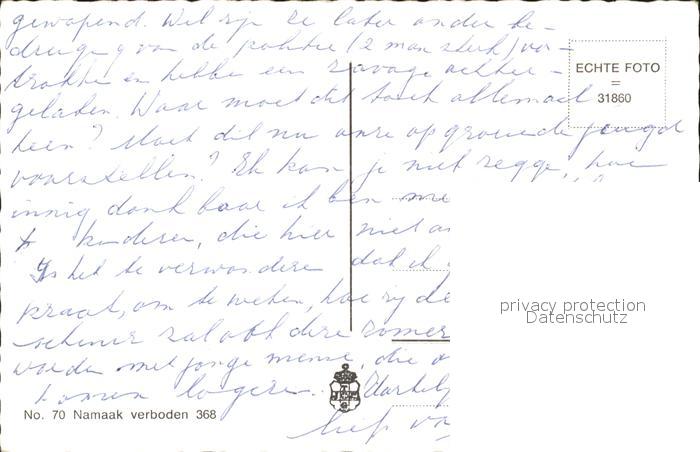 gewapend. Wel zijn ze later onder be-
dreiging van de politie (2 man sterk) ver-
trokke en hebbe een ravage achter-
gelaten. Waar moet dit toch allemaal
heen? Moet dit nu onze opgroeiende jeugd
voorstellen? Ik kan je niet zegge, hoe
innig dankbaar ik ben me
kinderen, die hier niet a
Is het te verwonderen dat ik
kraat, om te weten, hoe zij de
zal dere zomer
worden met jonge mense, die
komen logere. Hartelij
liep va
ECHTE FOTO
=
31860
privacy protection
Datenschutz
No. 70 Namaak verboden 368